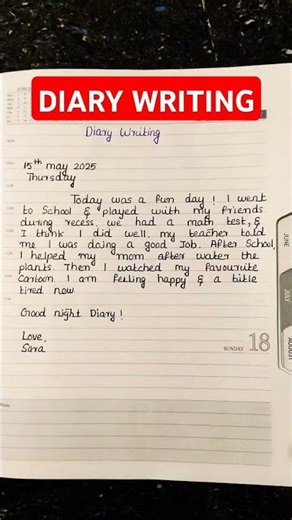 DIARY WRITING
Diary Writing
15th may 2025
Thursday
Today was a fun day! I went
to School & played with my friends
during recess. we had a math test, &
I think I did well. my teacher told
me I was doing a good Job. After School,
I helped my mom after water the
plants. Then I watched my favourite
Cartoon I am feeling happy & a little
tired now
Good night Diary!
Love,
Sara
SUNDAY 18
JUNE
JULY
AUGUST